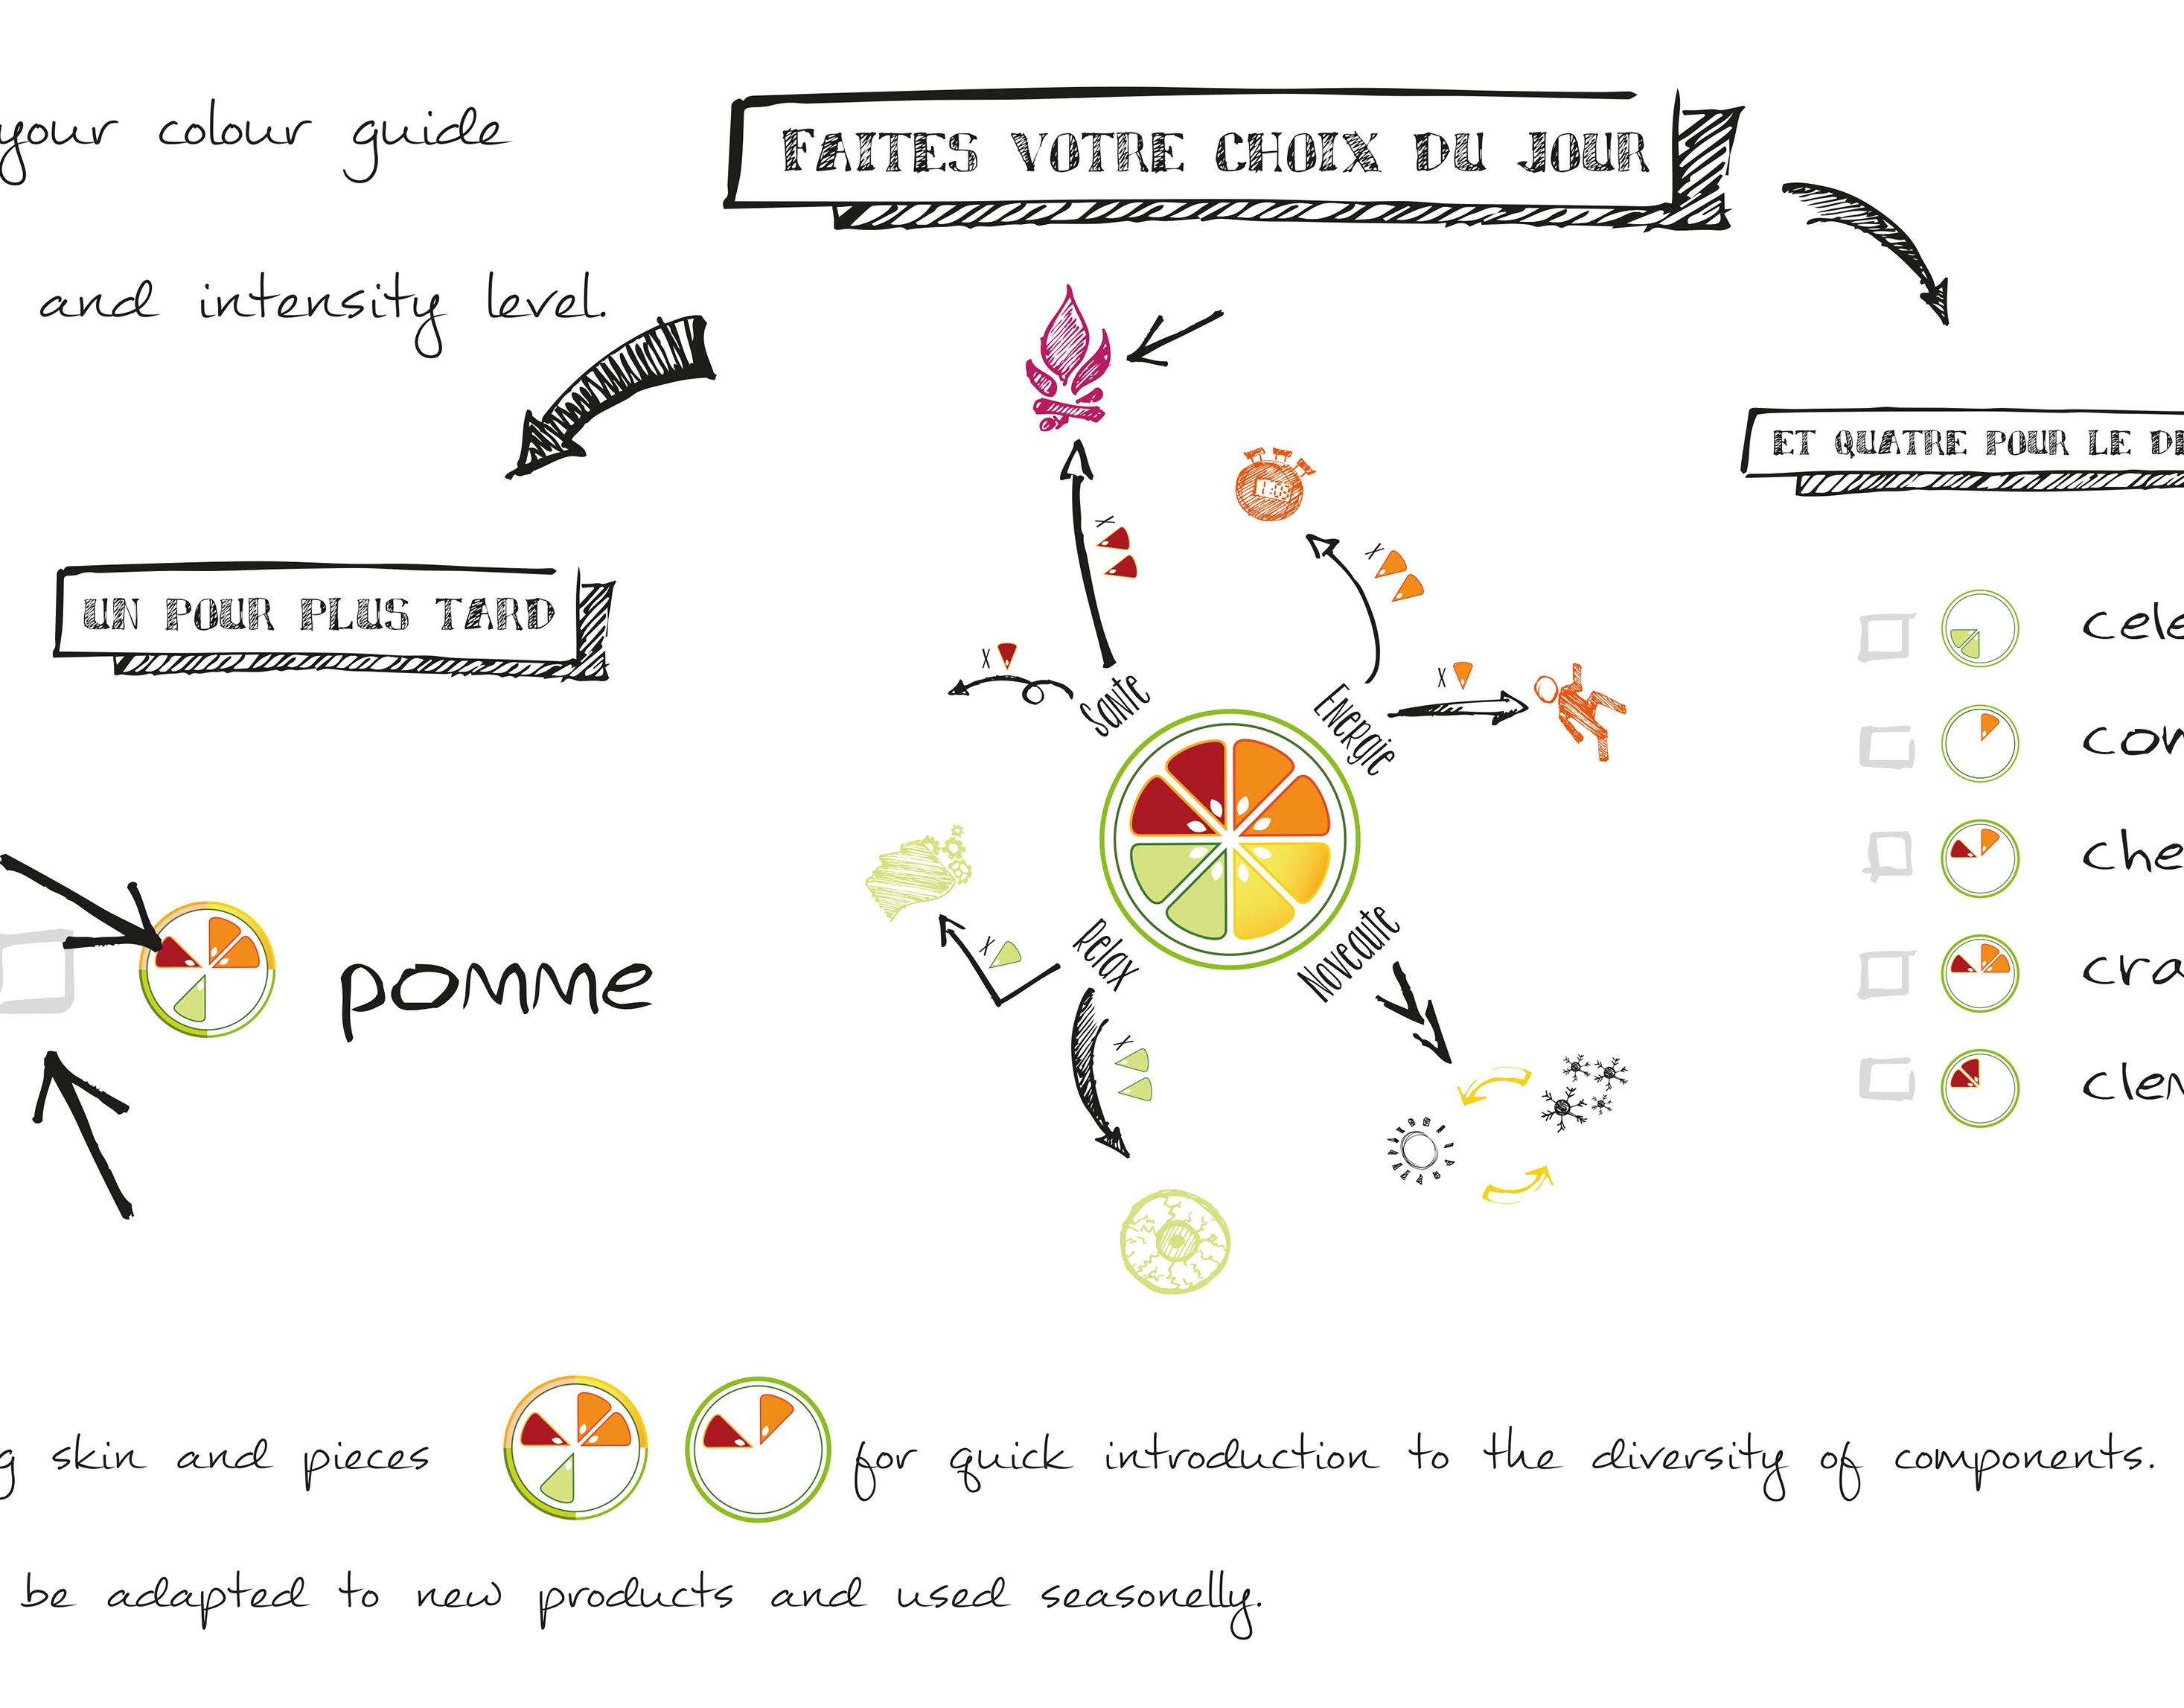 your colour guide
and intensity level.
FAITES VOTRE CHOIX DU JOUR
UN POUR PLUS TARD
ET QUATRE POUR LE DE
X
X
X
X
Sante
Energie
Relax
Noveaute
X
X
pomme
cele
con
che
cra
clem
g skin and pieces for quick introduction to the diversity of components.
be adapted to new products and used seasonelly.